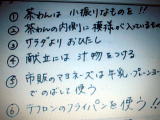 ① 茶わんは 小振りなものを!!
② 茶わんの内側に模様が入っているもの
③ サラダより おひたし
④ 献立には 汁物をつける
⑤ 市販のマヨネーズは牛乳・プレーンヨーグルト
でのばして使う
⑥ テフロンのフライパンを使う!!